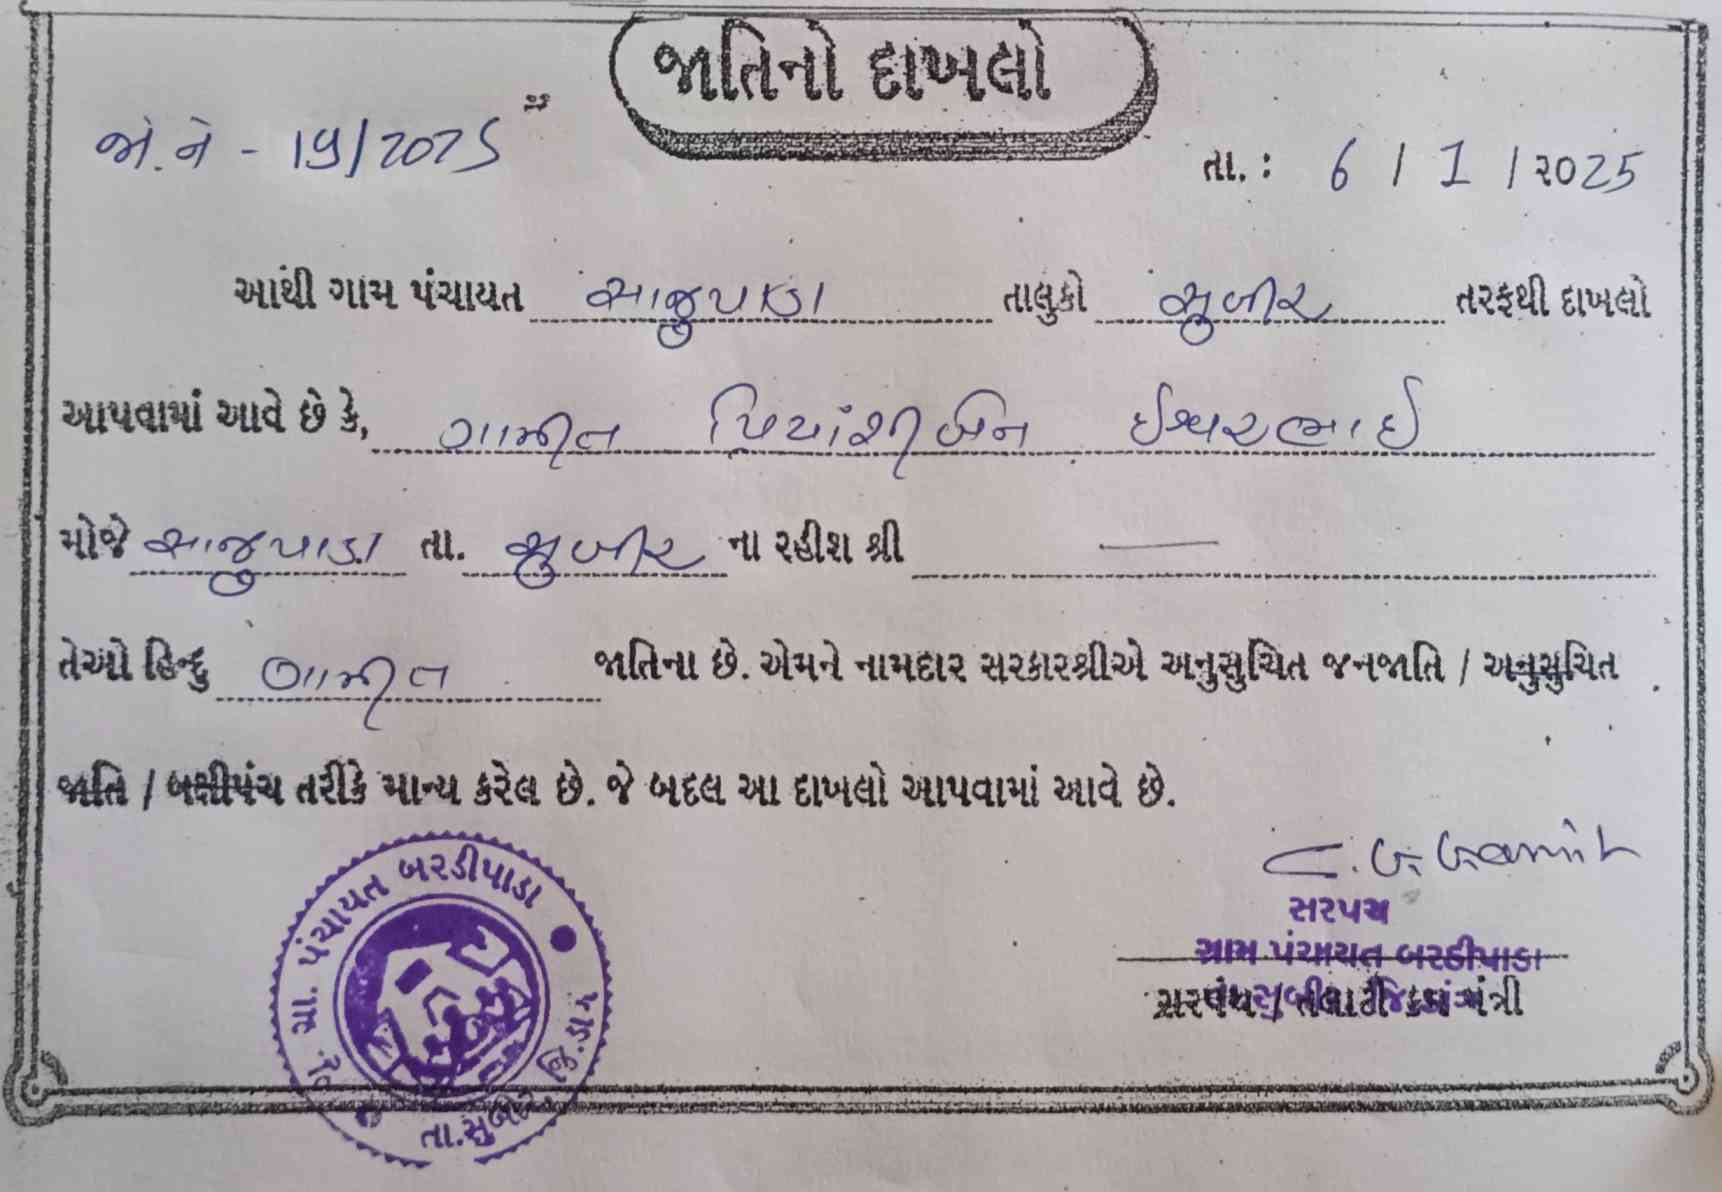 જાતિનો દાખલો
જા.ન - 19/2025
તા. : 6 / 1 / ૨૦25
આથી ગામ પંચાયત સાજુપાડા તાલુકો સુબીર તરફથી દાખલો
આપવામાં આવે છે કે, ગામીત પ્રિયાંશીબેન ઈશ્વરભાઈ
મોજે સાજુપાડા તા. સુબીર ના રહીશ શ્રી —
તેઓ હિન્દુ ગામીત જાતિના છે. એમને નામદાર સરકારશ્રીએ અનુસુચિત જનજાતિ / અનુસુચિત
જાતિ / બક્ષીપંચ તરીકે માન્ય કરેલ છે. જે બદલ આ દાખલો આપવામાં આવે છે.
C. G. Gamit
સરપંચ
ગ્રામ પંચાયત બરડીપાડા
સરપંચ / તલાટી કમ મંત્રી
ગ્રા. પંચાયત બરડીપાડા
તા.સુબીર જિ.ડાંગ